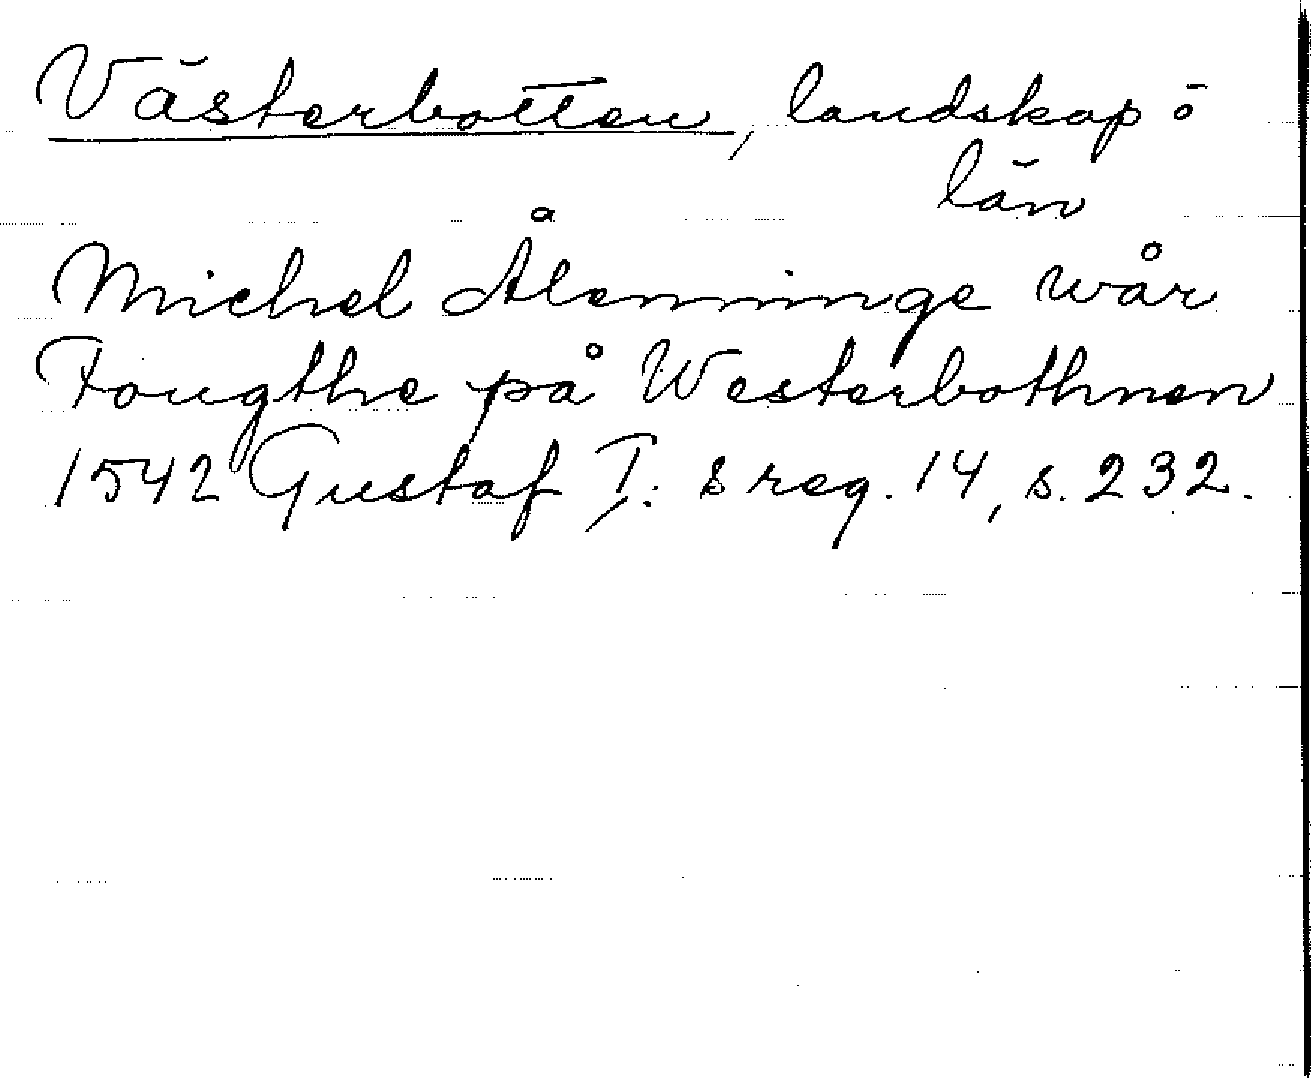 Västerbotten, landskap ö
län
Michel Ålenninge wår
Fougthe på Westerbothnen
1542 Gustaf I: s reg. 14, s. 232.